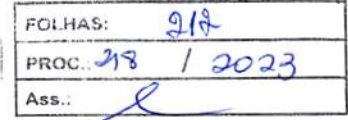 FOLHAS: 212
PROC.: 218 / 2023
Ass.: